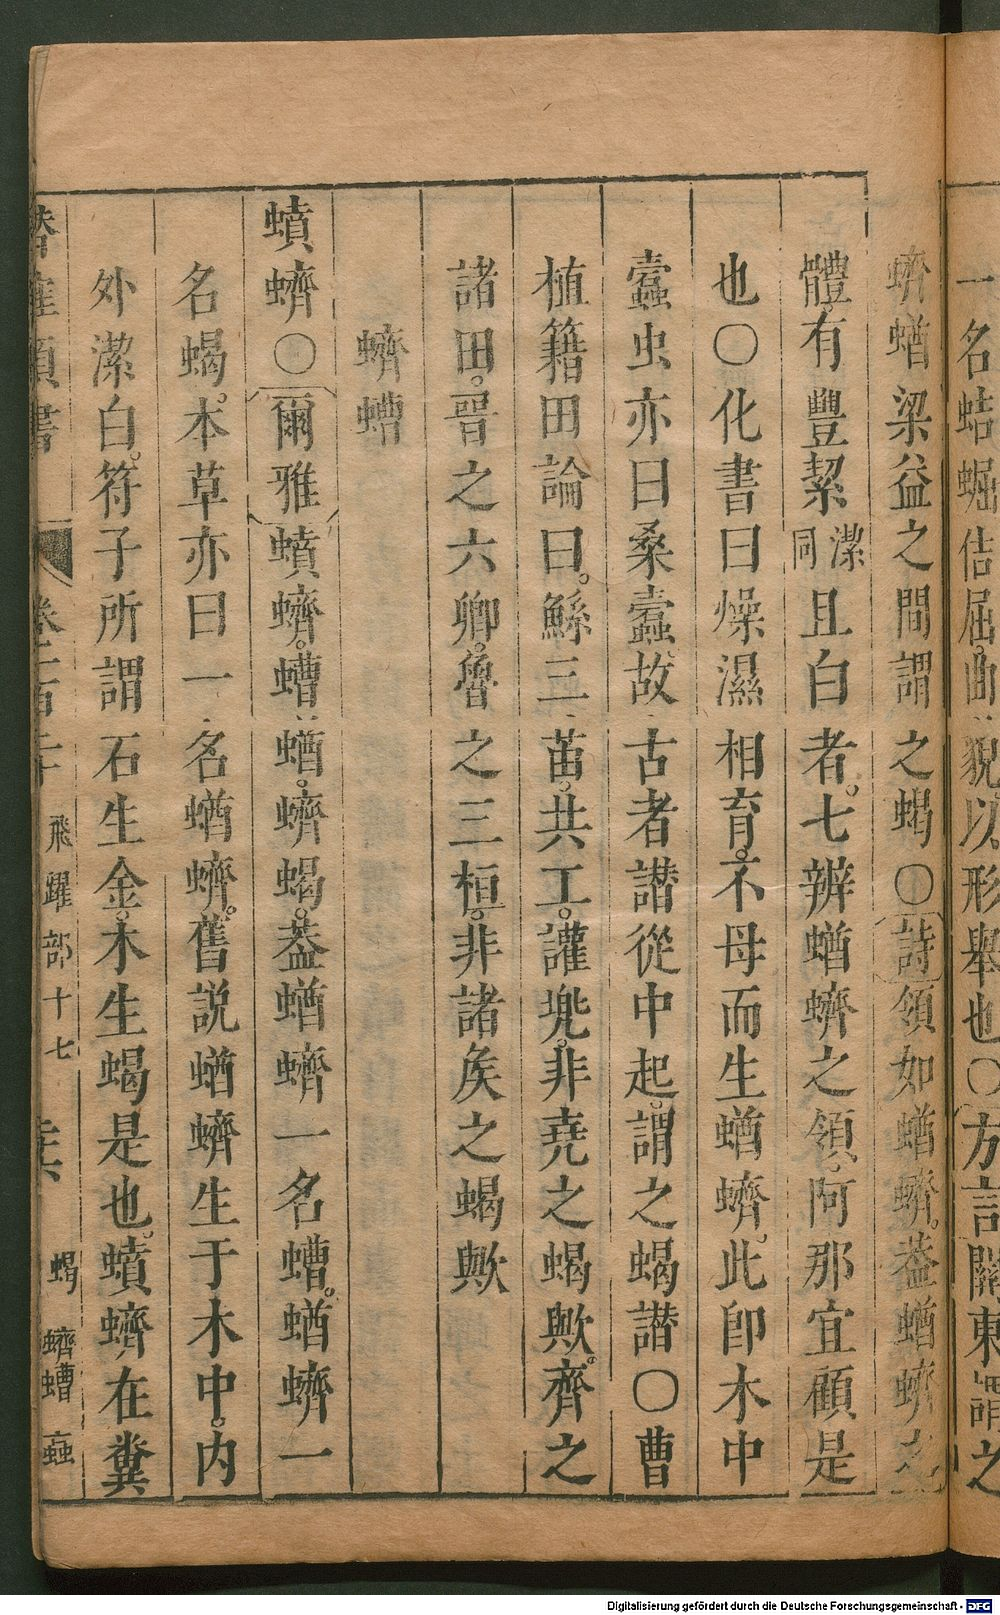 一名蛣蜛佶屈曲貌以形舉也○方言關東謂之
蠐蝤梁益之間謂之蝎○詩領如蝤蠐葢蝤蠐之
體有豐絜潔同且白者七辨蝤蠐之領阿那宜顧是
也○化書曰燥濕相育不母而生蝤蠐此卽木中
蠹虫亦曰桑蠹故古者譛從中起謂之蝎譛○曹
植籍田論曰鯀三苗共工讙兠非堯之蝎歟齊之
諸田晋之六卿魯之三桓非諸矦之蝎歟
蠐螬
蟦蠐○爾雅蟦蠐螬蝤蠐蝎葢蝤蠐一名螬蝤蠐一
名蝎本草亦曰一名蝤蠐舊説蝤蠐生于木中内
外潔白符子所謂石生金木生蝎是也蟦蠐在糞
潛確類書 卷一百二十 飛躍部十七 蝎 蠐螬 蝱
Digitalisierung gefördert durch die Deutsche Forschungsgemeinschaft - DFG